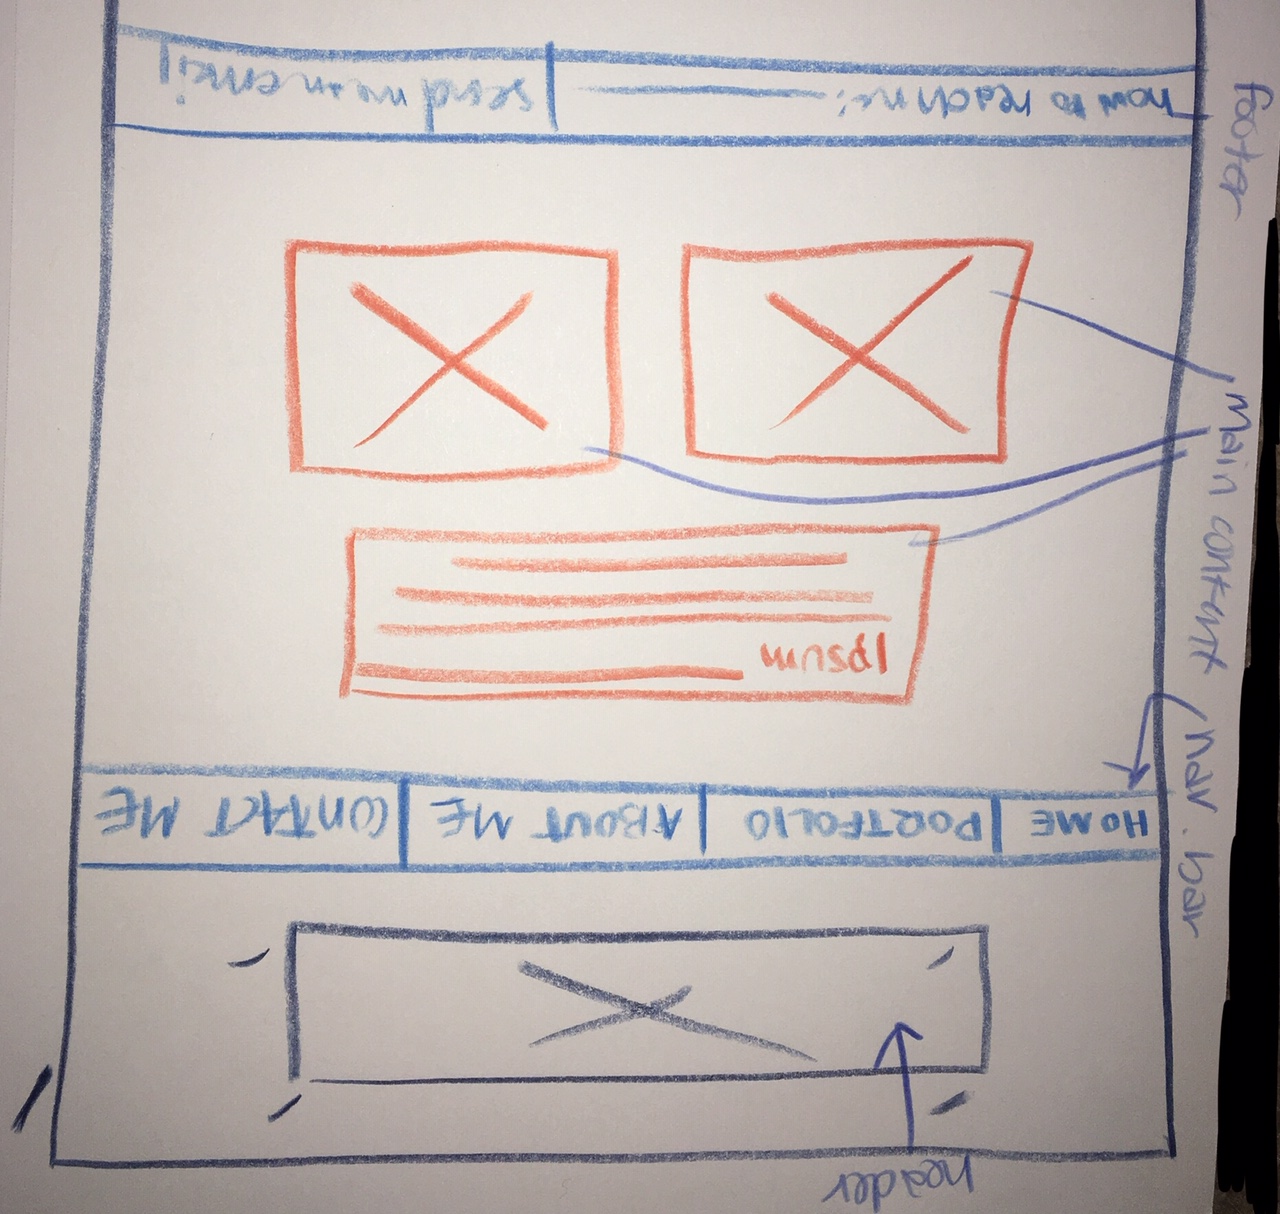 header
nav. bar
HOME PORTFOLIO ABOUT ME CONTACT ME
main content
Ipsum
footer
how to reach me:
send me an email